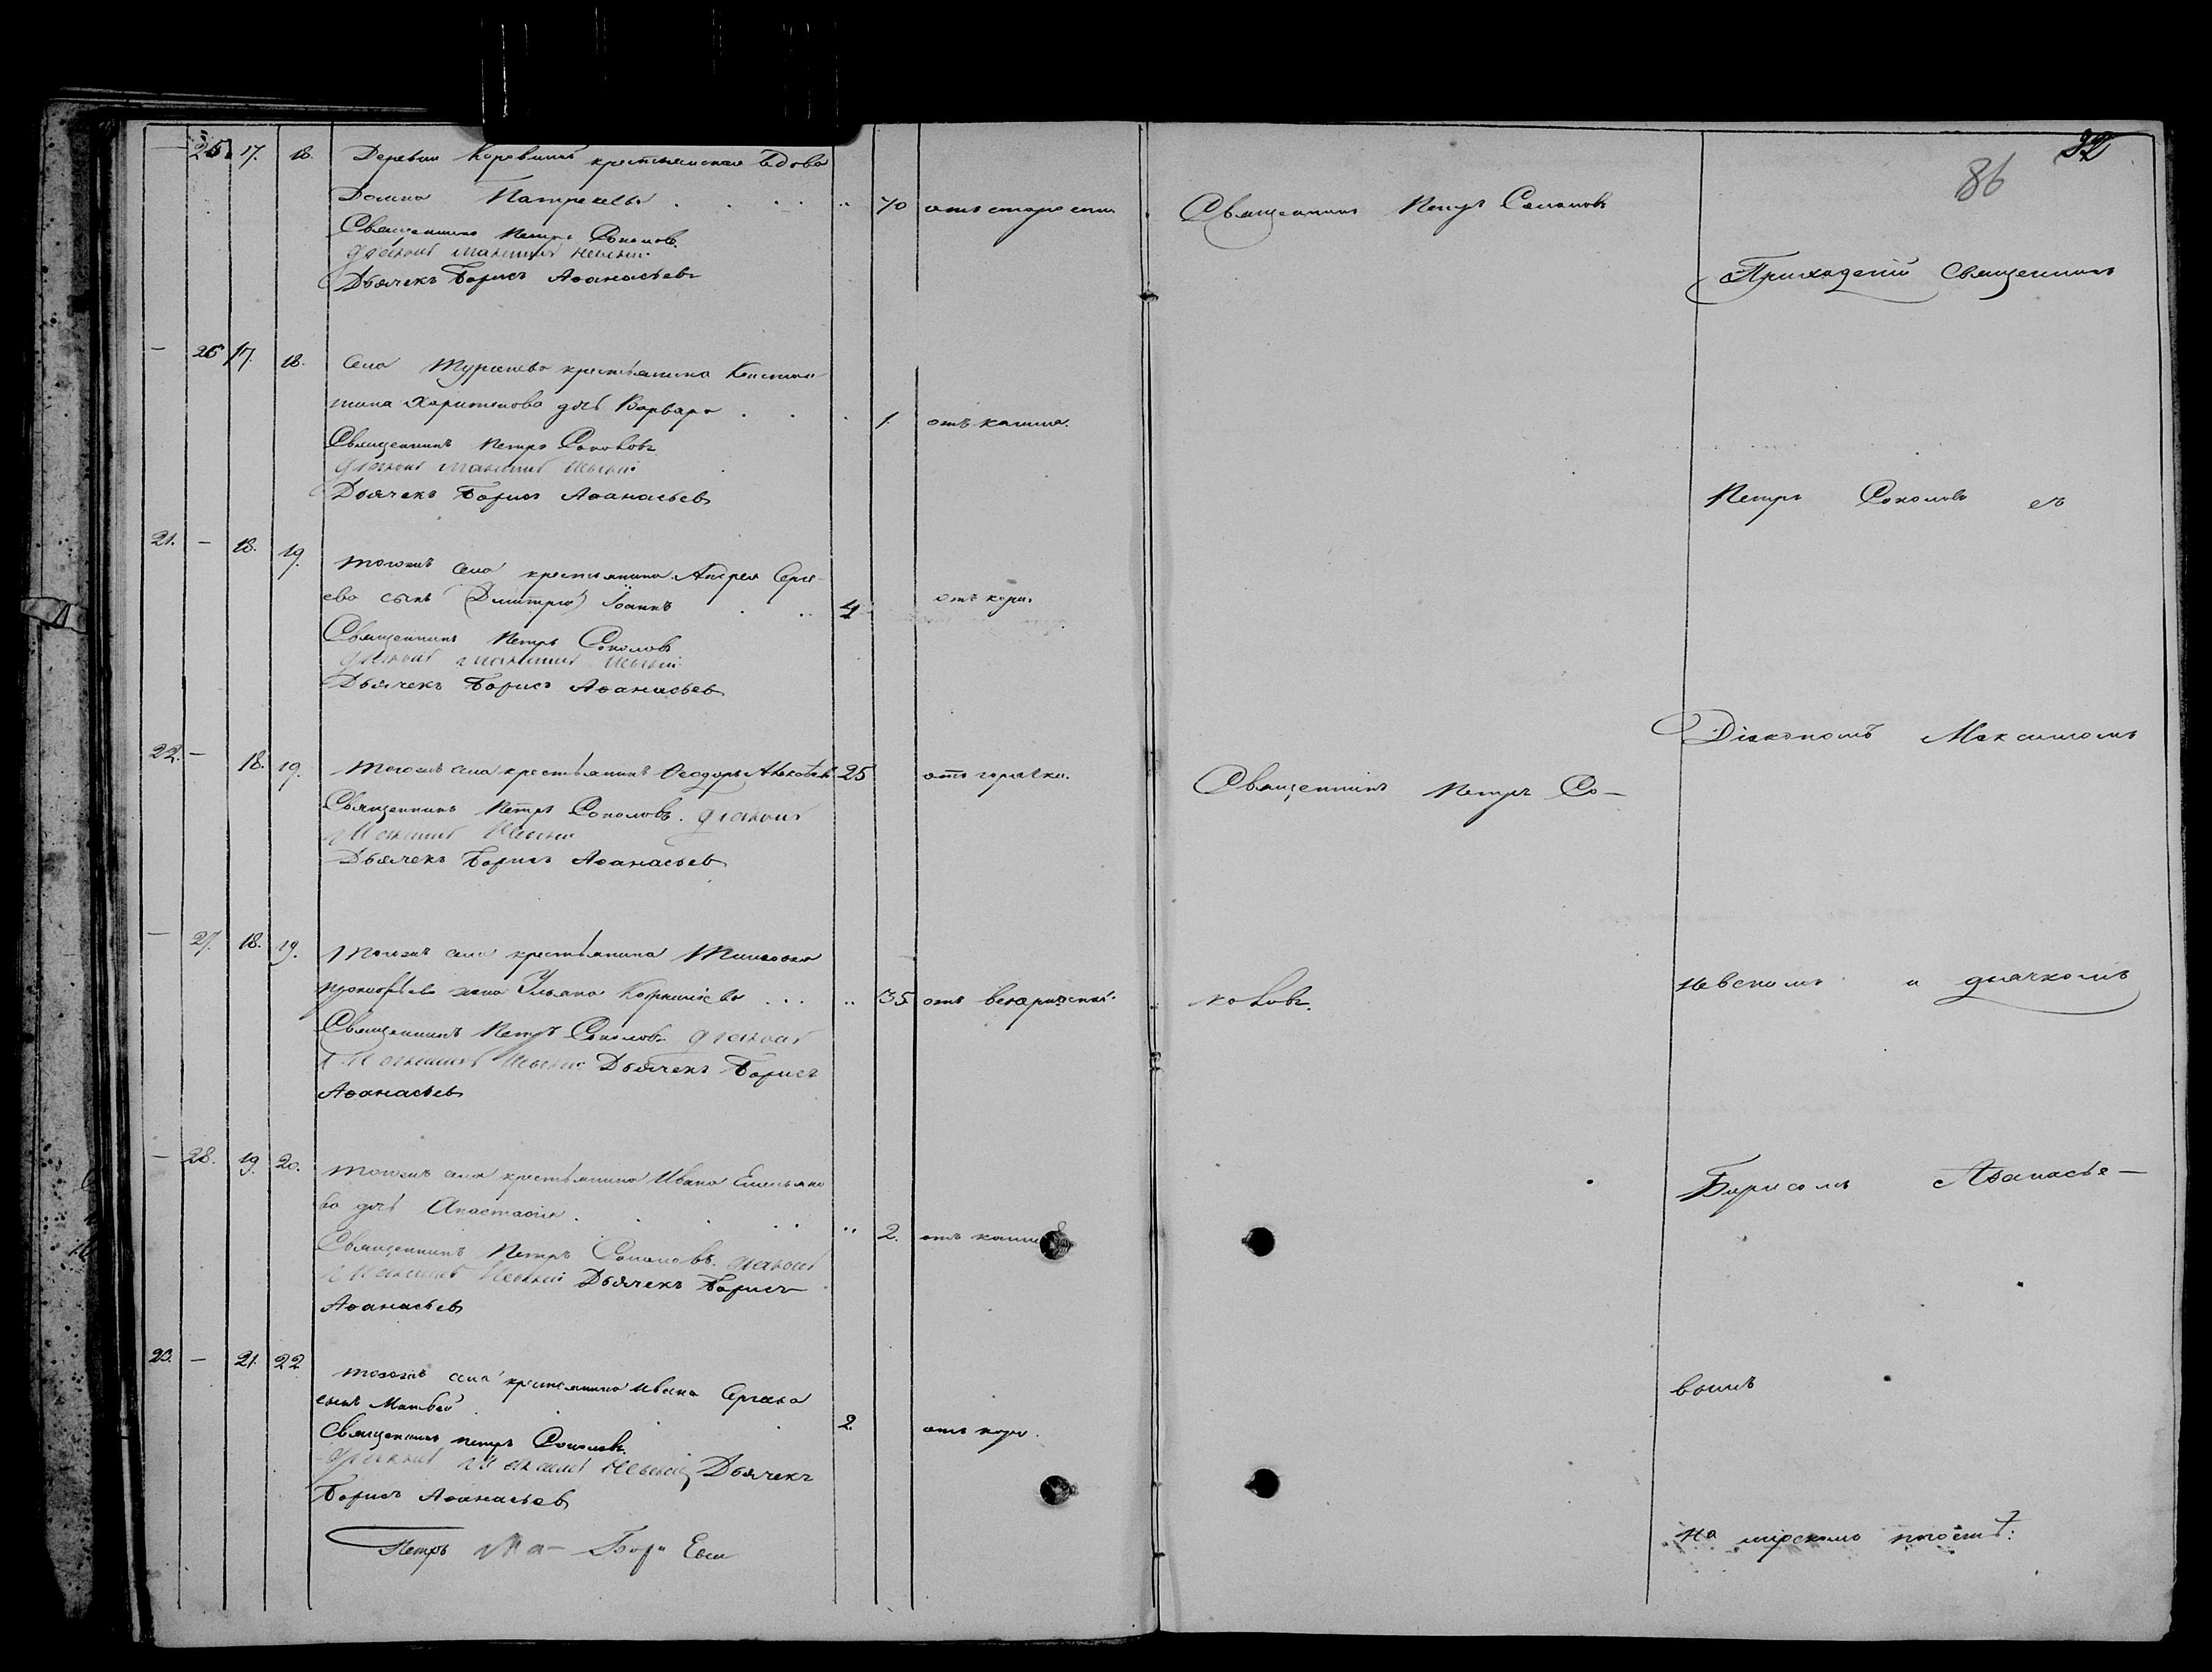 32
86
— 25. 17. 18. Деревни крестьянская вдова
Домна Патрекеева . . . . „ 70 отъ старости
Священникъ Петръ Соколовъ
Священникъ Петръ Соколовъ.
Діаконъ Максимъ Невскій
Дьячекъ Борисъ Аѳанасьевъ
Приходскій Священникъ
— 26 17. 18. Села крестьянина Констан-
тина Харитонова дочь Варвара . . . 1. отъ кашля.
Священникъ Петръ Соколовъ
Діаконъ Максимъ Невскій
Дьячекъ Борисъ Аѳанасьевъ
Петръ Соколовъ съ
21. — 18. 19. тогожъ села крестьянина Андрея Серге-
ева сынъ (Дмитрій) Іоаннъ . .. 4 отъ кори.
Священникъ Петръ Соколовъ
Діаконъ Максимъ Невскій
Дьячекъ Борисъ Аѳанасьевъ
Діакономъ Максимомъ
22. — 18. 19. тогожъ села крестьянинъ Ѳеодоръ 25 отъ горячки.
Священникъ Петръ Со-
Священникъ Петръ Соколовъ. Діаконъ
Максимъ Невскій
Дьячекъ Борисъ Аѳанасьевъ
— 27. 18. 19. тогожъ села крестьянина Тимоѳея
Прокофьева жена Ульяна Корнилиева ... „ 35 отъ
коловъ.
Невскимъ и дьячкомъ
Священникъ Петръ Соколовъ Діаконъ
Максимъ Невскій Дьячекъ Борисъ
Аѳанасьевъ
— 28. 19. 20. тогожъ села крестьянина Ивана Емельяно
ва дочь Анастасія . . . .. „ 2. отъ кашля
Борисомъ Аѳанасье-
Священникъ Петръ Соколовъ. Діаконъ
Максимъ Невскій Дьячекъ Борисъ
Аѳанасьевъ
23. — 21. 22 тогожъ села крестьянина Ивана
сынъ Матвей . . . 2. отъ кори.
вымъ
Священникъ Петръ Соколовъ.
Діаконъ Максимъ Невскій Дьячекъ
Борисъ Аѳанасьевъ
Петръ Ма- Бори
На мірскомъ погостѣ: